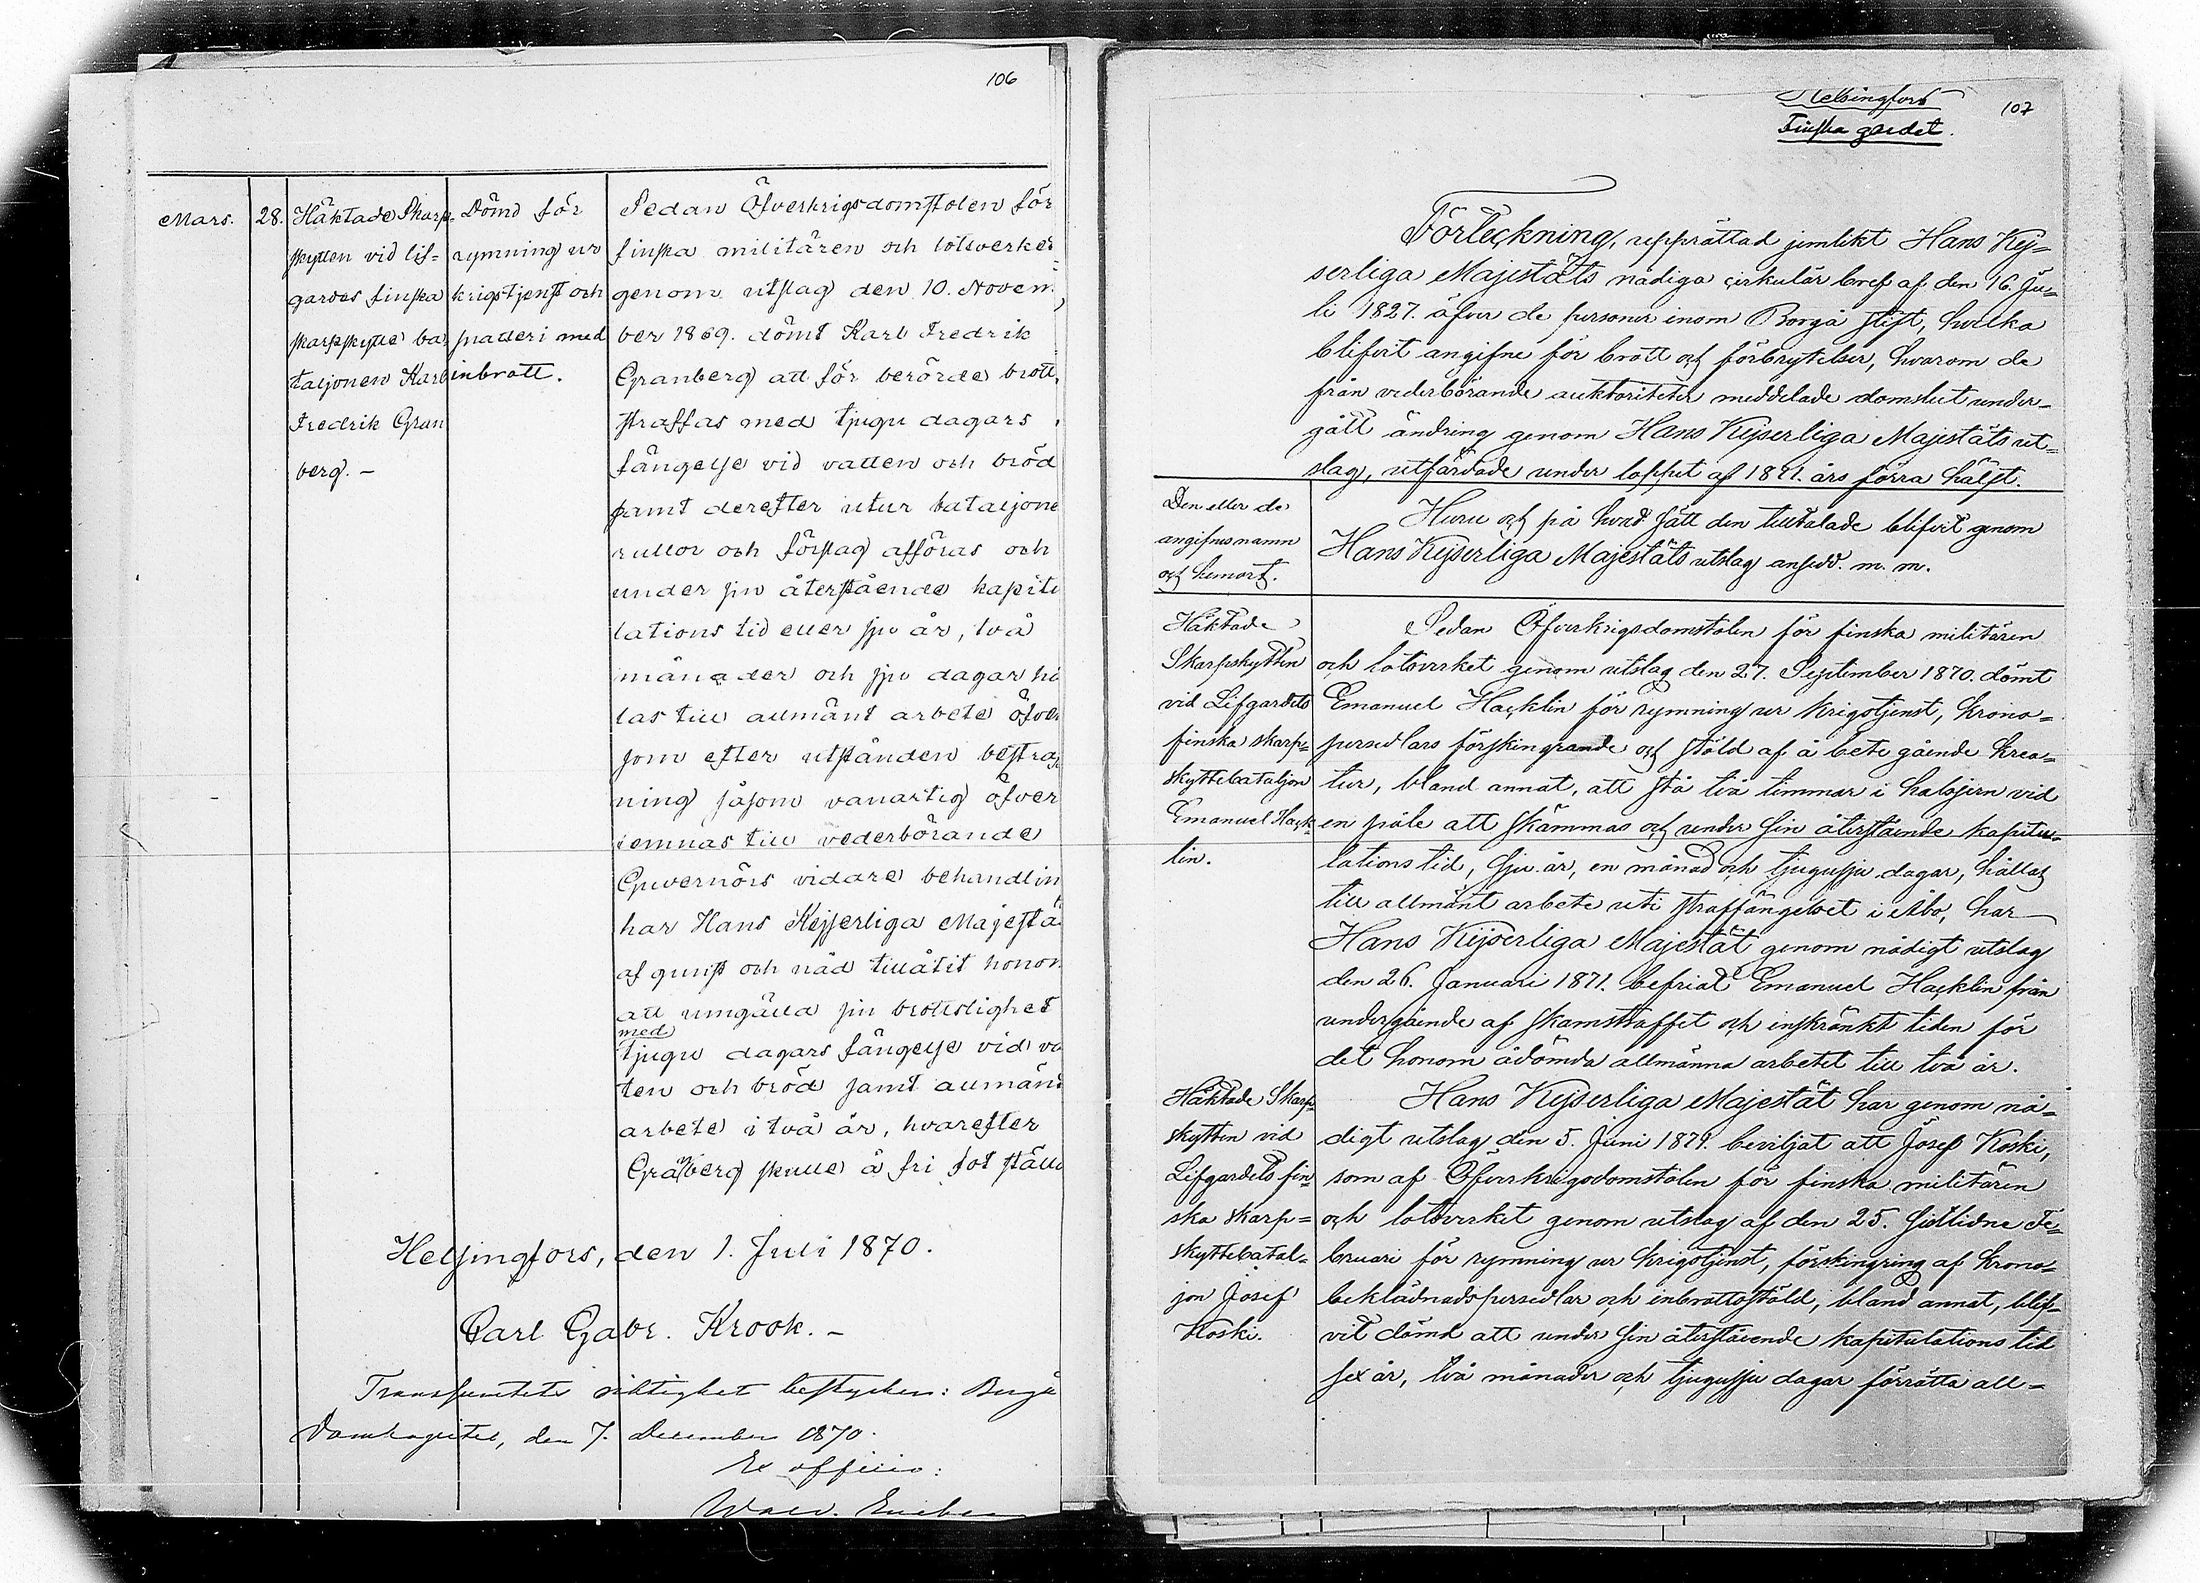 106
Mars.
28.
Häktade Skarp-
skytten vid lif-
gardes finska
skarpskytte ba
taljonen Karl
Fredrik Gran
berg. –
Dömd för
rymning ur
krigstjenst och
snatteri med
inbrott.
Sedan Öfverkrigsdomstolen för
finska militären och lotsverket
genom utslag den 10. Novem-
ber 1869. dömt Karl Fredrik
Granberg att för berörde brott,
straffas med tjugu dagars
fängelse vid vatten och bröd
samt derefter utur bataljone
rullor och förslag afföras och
under sin återstående kapitu
lations tid eller sju år, två
månader och sju dagar hå
las till allmänt arbete öfver
som efter utstånden bestraff
ning såsom vanartig öfver
lemnas till vederbörande
Guvernörs vidare behandlin
har Hans Kejserliga Majestä
af gunst och nåd tillåtit honom
att umgälla sin brottslighet
med
tjugu dagars fängelse vid va
ten och bröd samt allmänt
arbete i två år, hvarefter
Granberg skulle å fri fot ställa
Helsingfors, den 1. Juli 1870.
Carl Gabr. Krook. –
Transsumtets riktighet bestyrker: Borgå
Domkapitel, den 7. December 1870.
Ex officio:
107
Helsingfors
Finska gardet.
Förteckning, upprättad jemlikt Hans Kej=
serliga Majestäts nådiga cirkulär bref af den 16. Ju=
li 1827. öfver de personer inom Borgå stift, hvilka
blifvit angifne för brott och förbrytelser, hvarom de
från vederbörande auktoriteter meddelade domslut under-
gått ändring genom Hans Kejserliga Majestäts ut=
slag, utfärdade under loppet af 1871. års förra hälft.
Den eller de
angifnes namn
och hemort.
Huru och på hvad sätt den tilltalade blifvit genom
Hans Kejserliga Majestäts utslag ansedd. m. m.
Häktade
Skarpskytten
vid Lifgardets
finska skarp=
skyttebataljon
Emanuel Hack-
lin.
Sedan Öfverkrigsdomstolen för finska militären
och lotsverket genom utslag den 27. September 1870. dömt
Emanuel Hacklin för rymning ur krigstjenst, krono=
persedlars förskingrande och stöld af å bete gående krea=
tur, bland annat, att stå två timmar i halsjern vid
en påle att skämmas och under sin återstående kapitu-
lations tid, sju år, en månad och tjugusju dagar, hållas
till allmänt arbete uti straffängelset i Åbo, har
Hans Kejserliga Majestät genom nådigt utslag
den 26. Januari 1871. befriat Emanuel Hacklin från
undergående af skamstraffet och inskränkt tiden för
det honom ådömda allmänna arbetet till två år.
Häktade Skarp-
skytten vid
Lifgardets fin=
ska skarp=
skyttebatal=
jon Josef
Koski.
Hans Kejserliga Majestät har genom nå=
digt utslag den 5. Juni 1871. beviljat att Josef Koski,
som af Öfverkrigsdomstolen för finska militären
och lotsverket genom utslag af den 25. sistlidne Fe=
bruari för rymning ur krigstjenst, förskingring af krono=
beklädnadspersedlar och inbrottsstöld, bland annat, blif=
vit dömd att under sin återstående kapitulations tid
sex år, två månader och tjugusju dagar förrätta all=